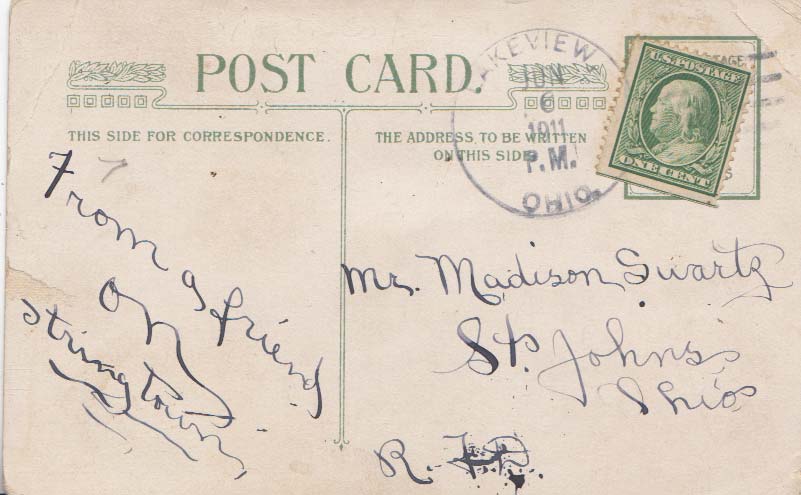 POST CARD.
LAKEVIEW
JUN
6
1911
P.M.
OHIO.
U.S. POSTAGE
ONE CENT
THIS SIDE FOR CORRESPONDENCE.
THE ADDRESS TO BE WRITTEN
ON THIS SIDE
From a friend
on
Stringtown
Mr. Madison Swartz
St. Johns
Ohio
R.F.D.